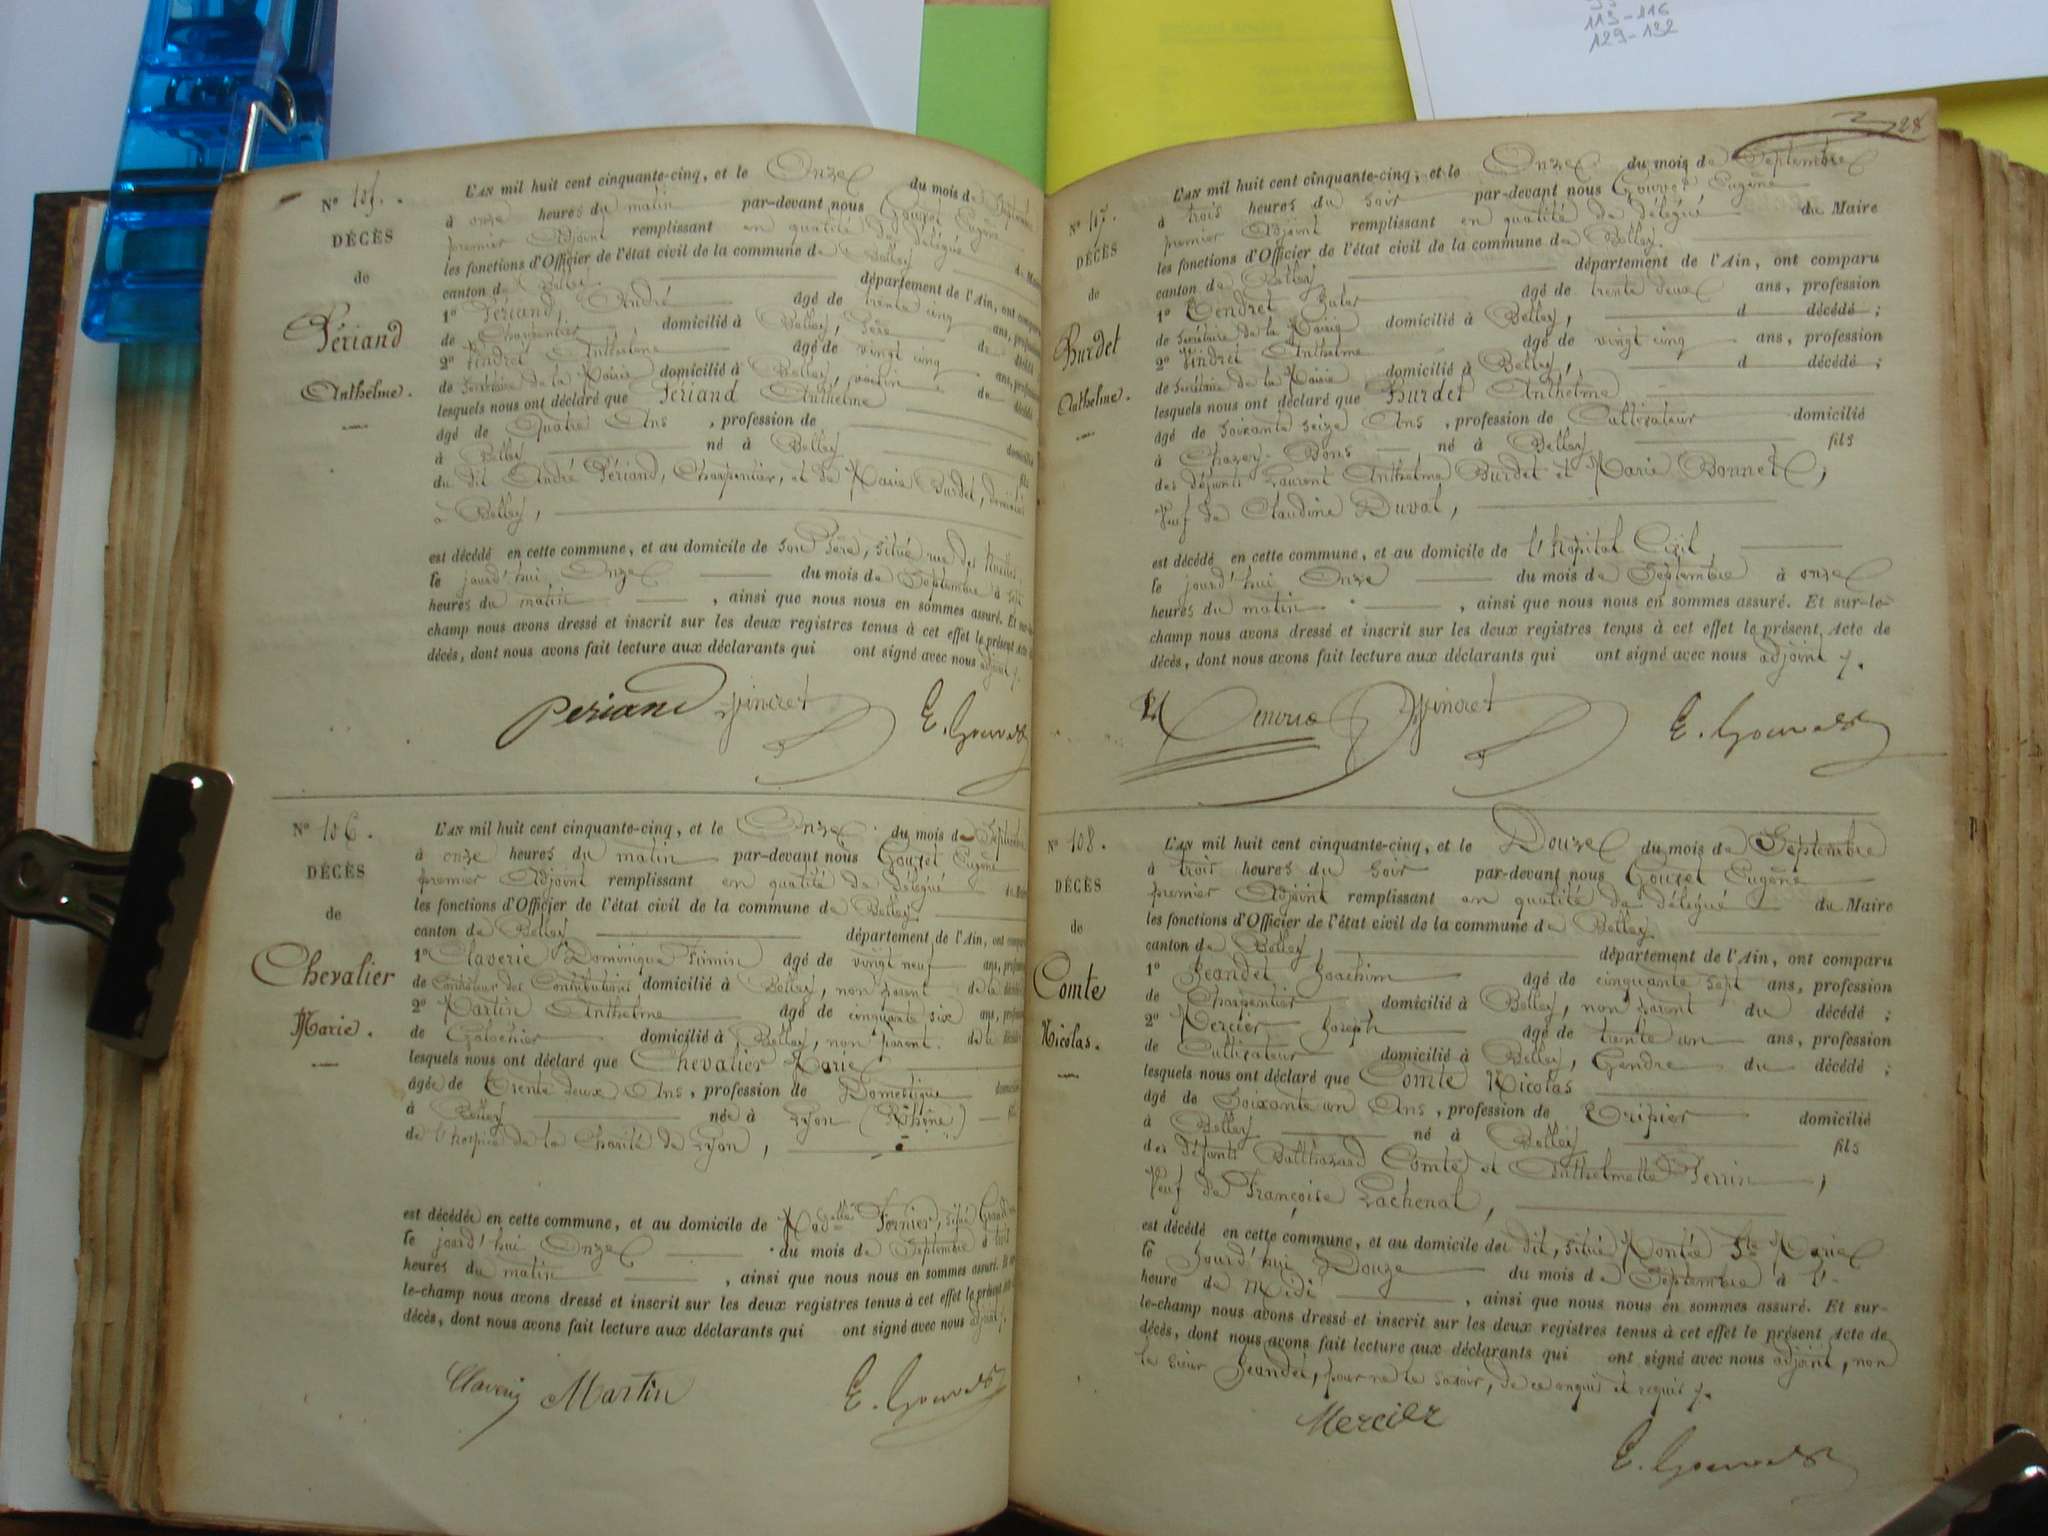 113-116
129-132
28
N° 105.
DÉCÈS
de
Périand
Anthelme.
L'AN mil huit cent cinquante-cinq, et le Onze du mois de Septembre
à onze heures du matin par-devant nous Gouvet Eugène
premier Adjoint remplissant en qualité de délégué du Maire
les fonctions d'Officier de l'état civil de la commune de Belley
canton de Belley département de l'Ain, ont comparu
1° Périand André âgé de trente cinq ans, profession
de Charpentier, domicilié à Belley, Père du décédé
2° Andret Anthelme âgé de vingt cinq ans, profession
de Secrétaire de la Mairie domicilié à Belley, voisin du décédé
lesquels nous ont déclaré que Périand Anthelme
âgé de Quatre Ans, profession de domicilié
à Belley né à Belley fils
du dit André Périand, Charpentier, et de Marie Burdet, domiciliés
à Belley,
est décédé en cette commune, et au domicile de son Père, situé rue des
le jourd'hui Onze du mois de Septembre à
heures du matin, ainsi que nous nous en sommes assuré. Et sur-le-
champ nous avons dressé et inscrit sur les deux registres tenus à cet effet le présent Acte de
décès, dont nous avons fait lecture aux déclarants qui ont signé avec nous adjoint
Periand E. Gouvet
N° 106.
DÉCÈS
de
Chevalier
Marie.
L'AN mil huit cent cinquante-cinq, et le Onze du mois de Septembre
à onze heures du matin par-devant nous Gouvet Eugène
premier Adjoint remplissant en qualité de délégué du Maire
les fonctions d'Officier de l'état civil de la commune de Belley
canton de Belley département de l'Ain, ont comparu
1° Claverie Dominique Firmin âgé de vingt neuf ans, profession
de Contrôleur des Contributions domicilié à Belley, non parent de la décédée
2° Martin Anthelme âgé de cinquante six ans, profession
de Galochier domicilié à Belley, non parent de la décédée
lesquels nous ont déclaré que Chevalier Marie
âgée de Trente deux Ans, profession de Domestique domiciliée
à Belley née à Lyon (Rhône) fille
de l'hospice de la Charité de Lyon,
est décédée en cette commune, et au domicile de Mad.elle Fernier, situé
le jourd'hui Onze du mois de Septembre à
heures du matin, ainsi que nous nous en sommes assuré. Et sur-
le-champ nous avons dressé et inscrit sur les deux registres tenus à cet effet le présent acte de
décès, dont nous avons fait lecture aux déclarants qui ont signé avec nous adjoint
Claverie Martin E. Gouvet
N° 107.
DÉCÈS
de
Burdet
Anthelme.
L'AN mil huit cent cinquante-cinq, et le Onze du mois de Septembre
à trois heures du soir par-devant nous Gouvet Eugène
premier Adjoint remplissant en qualité de délégué du Maire
les fonctions d'Officier de l'état civil de la commune de Belley.
canton de Belley département de l'Ain, ont comparu
1° Tendret Jules âgé de trente deux ans, profession
de Secrétaire de la Mairie domicilié à Belley, d décédé;
2° Andret Anthelme âgé de vingt cinq ans, profession
de Secrétaire de la Mairie domicilié à Belley, d décédé;
lesquels nous ont déclaré que Burdet Anthelme
âgé de soixante seize Ans, profession de Cultivateur domicilié
à Chazey-Bons né à Belley fils
des défunts Laurent Anthelme Burdet et Marie Bonnet,
Veuf de Claudine Duval,
est décédé en cette commune, et au domicile de l'Hôpital Civil,
le jourd'hui Onze du mois de Septembre à onze
heures du matin, ainsi que nous nous en sommes assuré. Et sur-le-
champ nous avons dressé et inscrit sur les deux registres tenus à cet effet le présent Acte de
décès, dont nous avons fait lecture aux déclarants qui ont signé avec nous adjoint
E. Gouvet
N° 108.
DÉCÈS
de
Comte
Nicolas.
L'AN mil huit cent cinquante-cinq, et le Douze du mois de Septembre
à trois heures du soir par-devant nous Gouvet Eugène
premier Adjoint remplissant en qualité de délégué du Maire
les fonctions d'Officier de l'état civil de la commune de Belley
canton de Belley, département de l'Ain, ont comparu
1° Jeandet Joachim âgé de cinquante sept ans, profession
de Charpentier domicilié à Belley, non parent du décédé;
2° Mercier Joseph âgé de trente un ans, profession
de Cultivateur domicilié à Belley, Gendre du décédé;
lesquels nous ont déclaré que Comte Nicolas
âgé de Soixante un Ans, profession de Tripier domicilié
à Belley né à Belley fils
des défunts Balthazard Comte et Anthelmette Perrin,
Veuf de Françoise Lachenal,
est décédé en cette commune, et au domicile du dit, situé Montée Ste Marie
le Jourd'hui Douze du mois de Septembre à l'
heure de Midi, ainsi que nous nous en sommes assuré. Et sur-
le-champ nous avons dressé et inscrit sur les deux registres tenus à cet effet le présent Acte de
décès, dont nous avons fait lecture aux déclarants qui ont signé avec nous adjoint, non
le sieur Jeandet, pour ne le savoir, de ce enquis et requis
Mercier
E. Gouvet